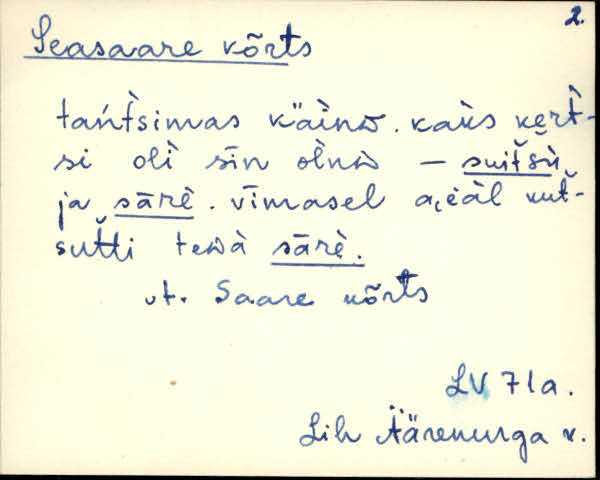 2.
Seasaare kõrts
tańt̀simas käìnᴅ. kaùs kert̀-
si olì sīn olnᴅ — suitšù
ja sārè. vīmasel a,èàl kut̀-
sutti tewà sārè.
vt. Saare kõrts
LV 71a.
Lih Äärenurga k.